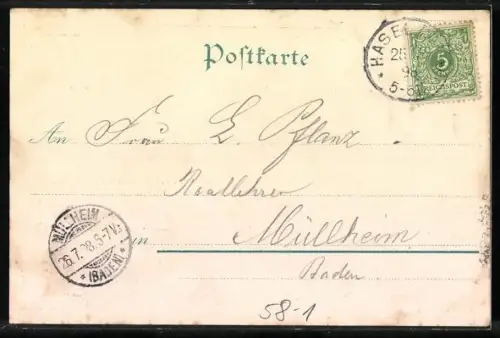 Postkarte
HASEL
25
98
5-6
5
REICHSPOST
An Frau L. Pflanz
Reallehrer
in Müllheim
Baden
MÜLLHEIM
26.7.98.6-7V.
(BADEN)
58-1